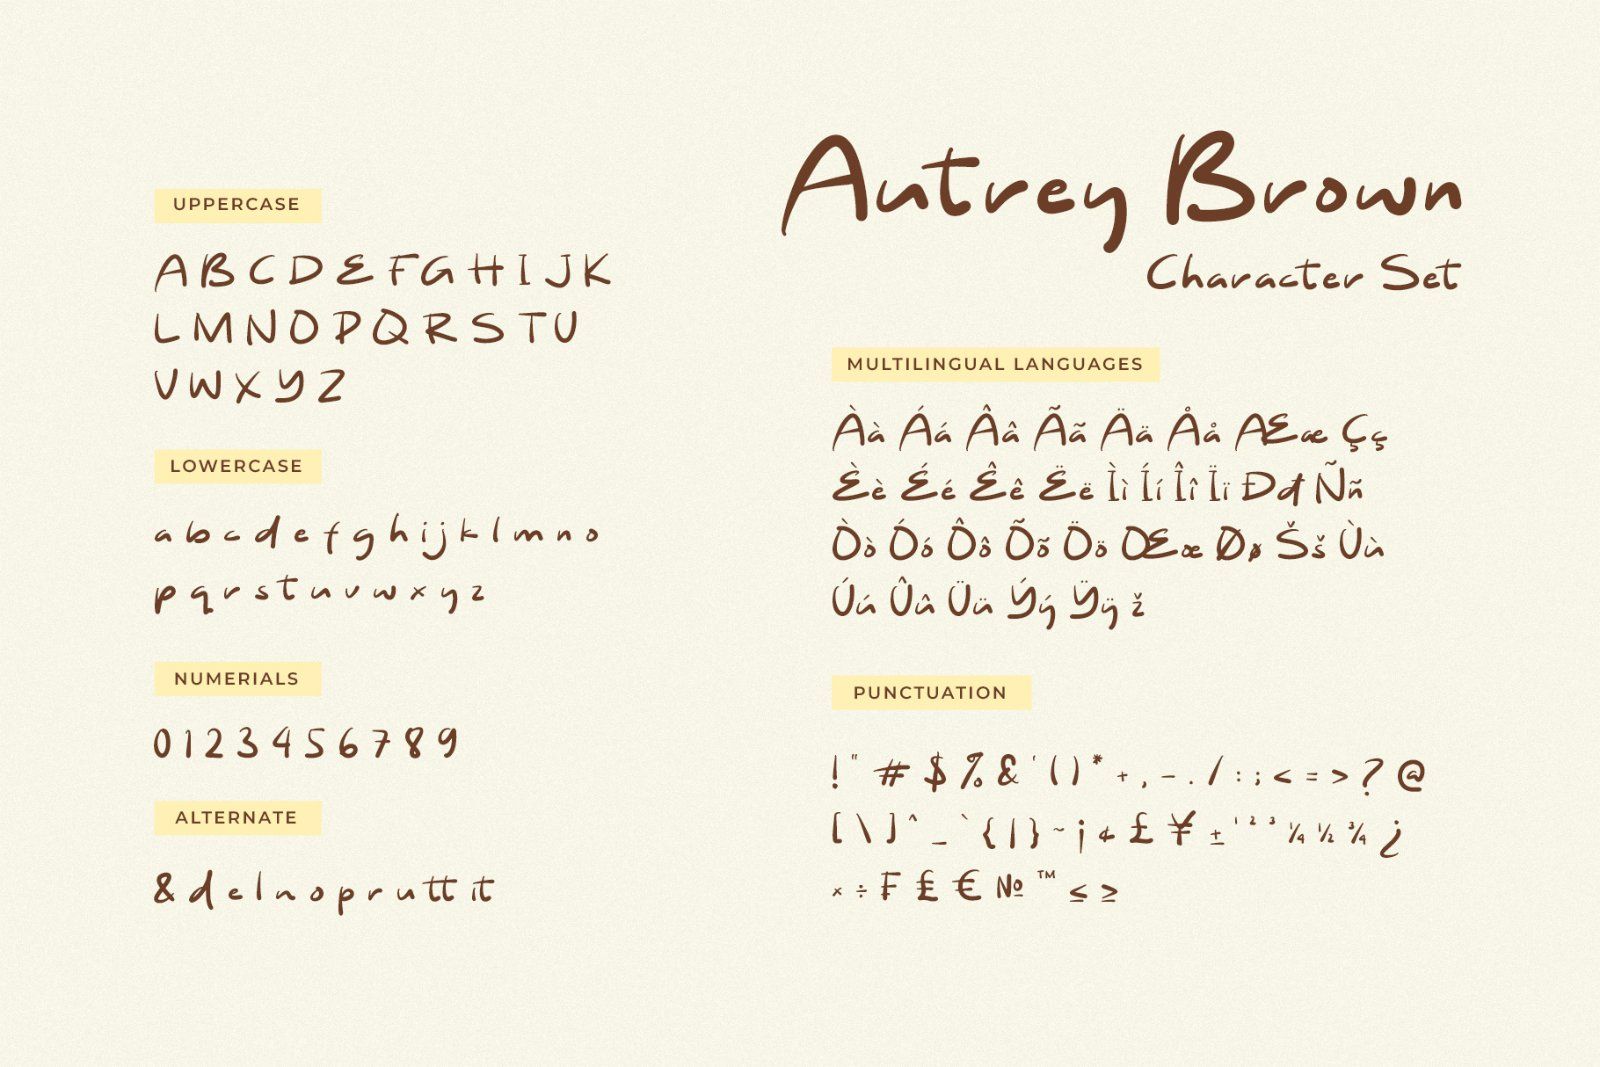 Autrey Brown
Character Set
UPPERCASE
A B C D E F G H I J K
L M N O P Q R S T U
V W X Y Z
LOWERCASE
a b c d e f g h i j k l m n o
p q r s t u v w x y z
NUMERIALS
0 1 2 3 4 5 6 7 8 9
ALTERNATE
& d e l n o p r u tt it
MULTILINGUAL LANGUAGES
Àà Áá Ââ Ãã Ää Åå Ææ Çç
Èè Éé Êê Ëë Ìì Íí Îî Ïï Đđ Ññ
Òò Óó Ôô Õõ Öö Œœ Øø Šš Ùù
Úú Ûû Üü Ýý Ÿÿ ž
PUNCTUATION
! " # $ % & ' ( ) * + , - . / : ; < = > ? @
[ \ ] ^ _ ` { | } ~ ¡ ¢ £ ¥ ± ¹ ² ³ ¼ ½ ¾ ¿
× ÷ ₣ ₤ € № ™ ≤ ≥